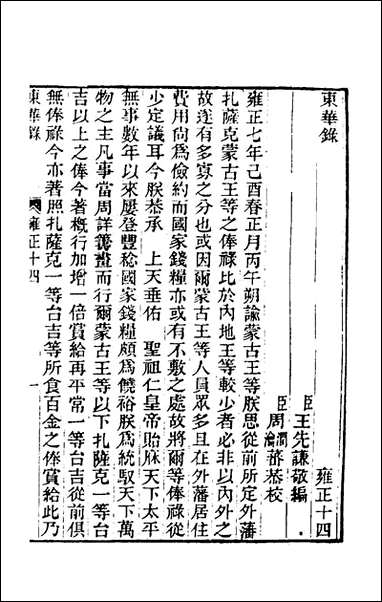 東華錄
雍正十四
臣王先謙敬編
臣周潤蕃
周瀹蕃恭校
雍正七年己酉春正月丙午朔諭蒙古王等朕思從前所定外藩
扎薩克蒙古王等之俸祿比於內地王等較少者必非以內外之
故遂有多寡之分也或因爾蒙古王等人員眾多且在外藩居住
費用尙爲儉約而國家錢糧亦或有不敷之處故將爾等俸祿從
少定議耳今朕恭承 上天垂佑 聖祖仁皇帝貽庥天下太平
無事數年以來屢登豐稔國家錢糧頗爲饒裕朕爲統馭天下萬
物之主凡事當周詳籌畫而行爾蒙古王等以下扎薩克一等台
吉以上之俸今著槪行加增一倍賞給再平常一等台吉從前俱
無俸祿今亦著照扎薩克一等台吉等所食百金之俸賞給此乃
東華錄
雍正十四
一